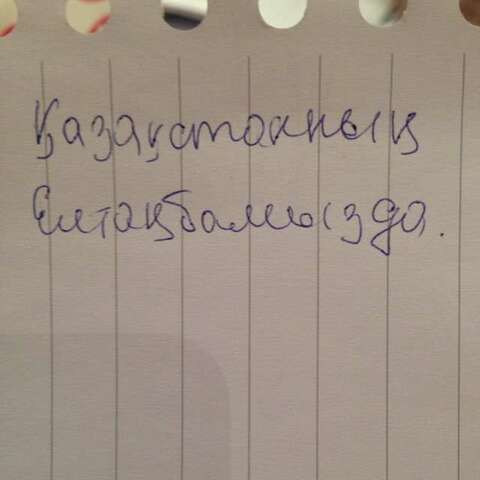 Қазақстанның
Елтаңбамызда.